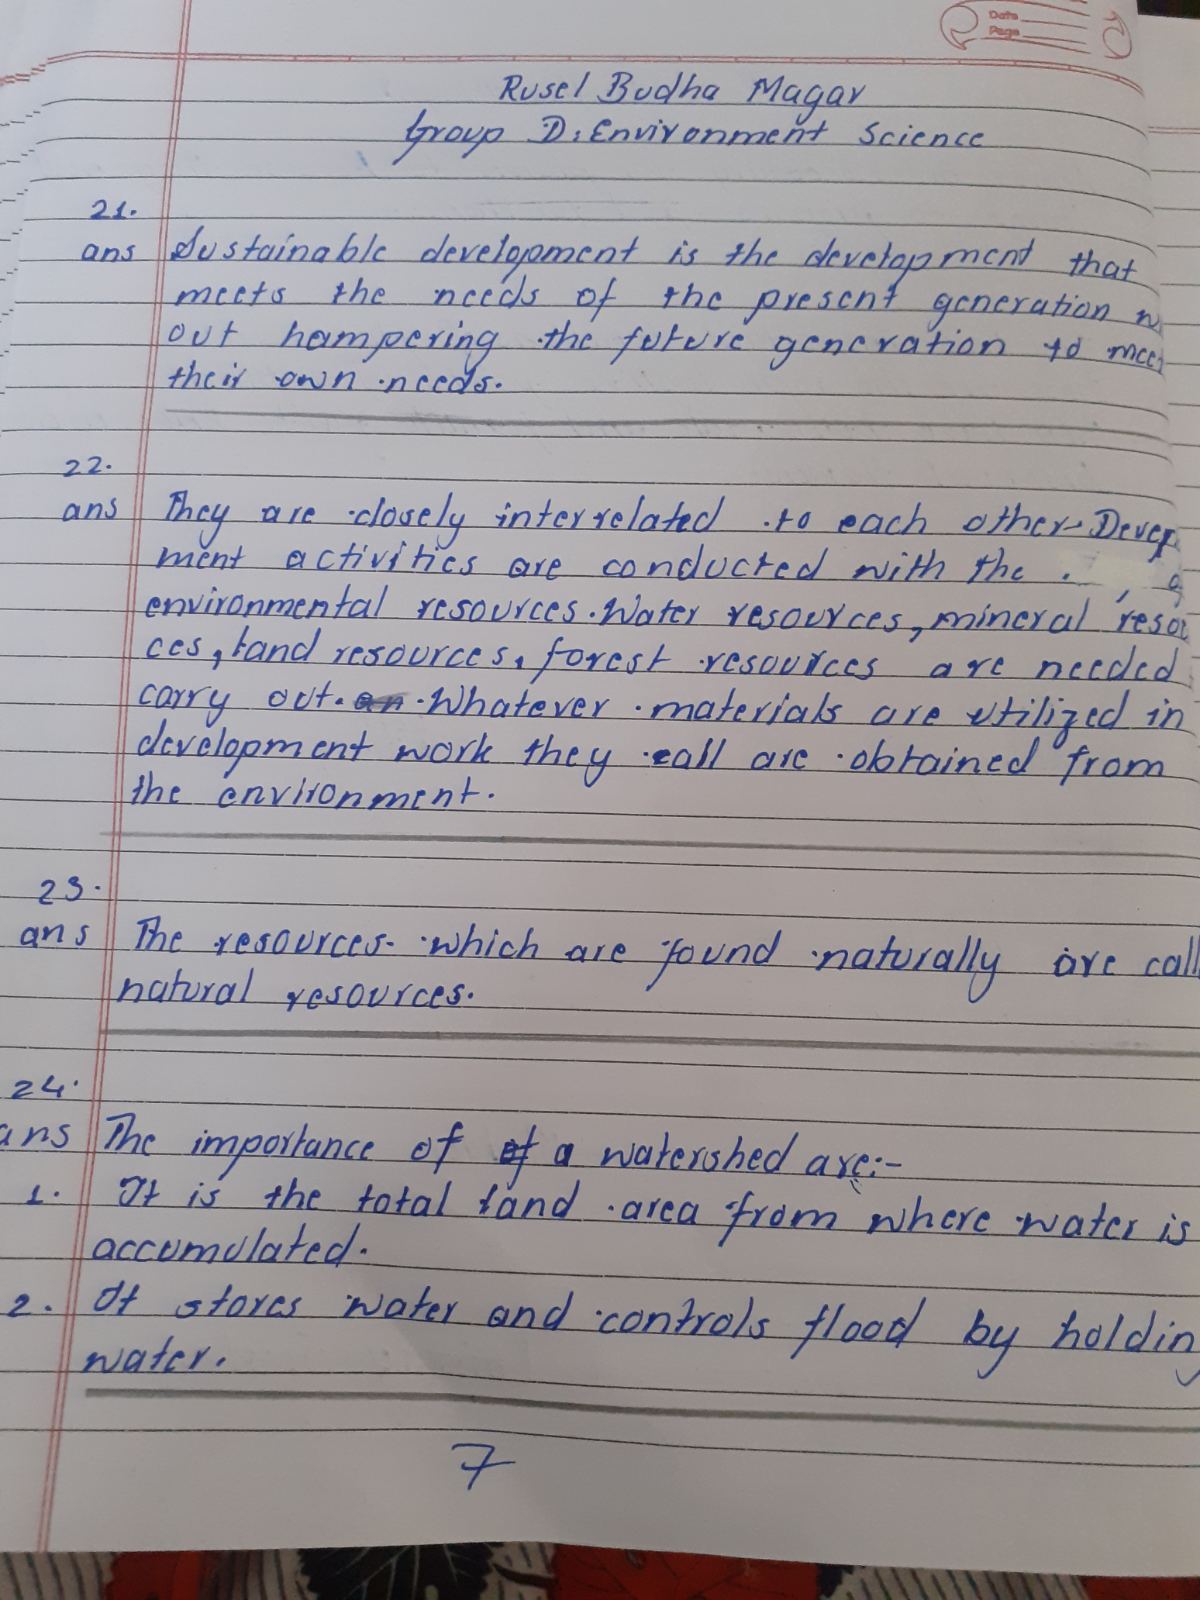 Date
Page
Rusel Budha Magar
Group D: Environment Science
21.
ans Sustainable development is the development that
meets the needs of the present generation w
out hampering the future generation to mee
their own needs.
22.
ans They are closely interrelated to each other. Develop
ment activities are conducted with the
environmental resources. Water resources, mineral resou
ces, land resources, forest resources are needed
carry out. Whatever materials are utilized in
development work they all are obtained from
the environment.
23.
ans The resources which are found naturally are call
natural resources.
24.
ans The importance of of a watershed are:-
1. It is the total land area from where water is
accumulated.
2. It stores water and controls flood by holding
water.
7